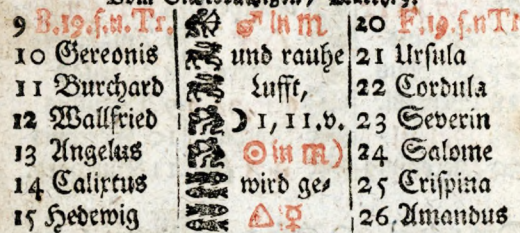 9 B.19.s.n.Tr. ♂ in ♏ 20 F.19.s.n Tr
10 Gereonis und rauhe 21 Ursula
11 Burchard Lufft, 22 Cordula
12 Wallfried ☽ 1, 11.v. 23 Severin
13 Angelus ☉ in ♏) 24 Salome
14 Calixtus wird ge- 25 Crispina
15 Hedewig △ ☿ 26. Amandus